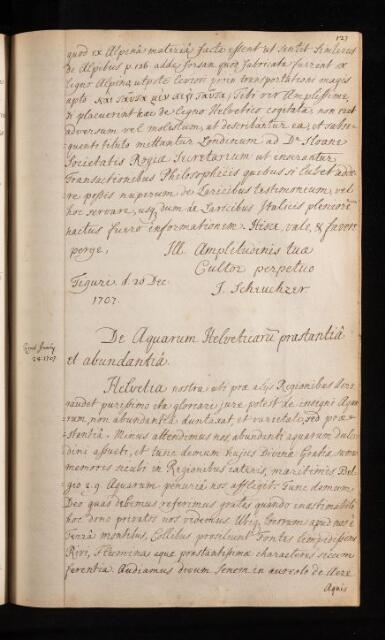 123
quod ex Alpina materia facta essent ut sentit Simlerus
de Alpibus p. 126. adde forsan quod fabricata fuerint ex
ligno Alpino, utpote leviori porro transportationi magis
apto και ταυτα μεν περι ταυτα, Tibi vir Amplissime
si placuerint hæc de ligno Helvetico cogitata, non erit
adversum, vel molestum, ut describantur ea, et subse-
quenti titulo mittantur Londinum ad Dn. Sloane
Societatis Regiæ Secretarium ut inserantur
Transactionibus Philosophicis quibus si lubet adde-
re possis nuperum de Laricibus testimonium, vel
hoc servare, usq. dum de Laricibus Italicis pleniorem
nactus fuero informationem. Hisce, vale, & favere
perge,
Ill. Amplitudinis tuæ
Cultor perpetuo
J. Scheuchzer
Tiguri d. 20 Dec.
1707.
De Aquarum Helveticarū præstantiâ
et abundantiâ.
24: 1707
Helvetia nostra uti præ aliis Regionibus Aere
gaudet purissimo ita gloriari jure potest de insigni Aqua-
rum, non abundantia duntaxat, et varietate, sed præ-
stantiâ. Minus attendimus nos abundanti aquarum dulce-
dini assueti, et tunc demum hujus Divinæ Gratiæ sumus
memores sicubi in Regionibus cæteris, maritimis Bel-
gio e.g. Aquarum penuria nos affliget. Tunc demum
Deo quas debemus referimus grates quando inæstimabili
hoc dono privatos nos videmus. Ubiq. ferrum apud nos è
Terrâ montibus, Collibus prosiliunt Fontes limpidissimi
Rivi, Flumina aquæ præstantissimæ characteres secum
ferentia. Audiamus divum Senem in aureolo de Aere
Aquis